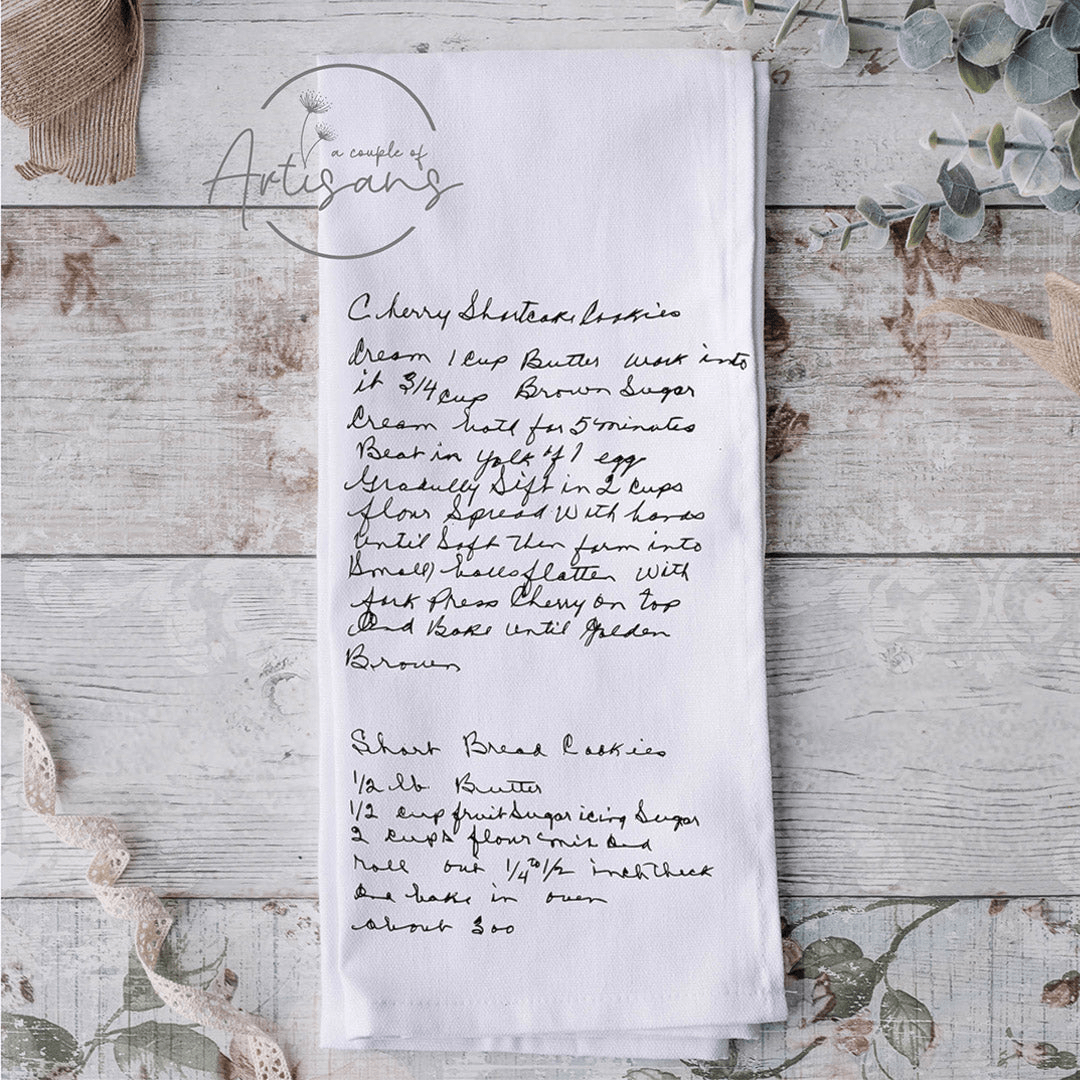 a couple of
Artisans
Cherry Shortcake Cookies
Cream 1 cup Butter work into
it 3/4 cup Brown Sugar
Cream both for 5 minutes
Beat in yolk of 1 egg
Gradully Sift in 2 cups
flour Spread With hands
Until Soft Then form into
Small balls flatten With
fork Press Cherry on top
And Bake Until Golden
Brown
Short Bread Cookies
1/2 lb Butter
1/2 cup fruit Sugar icing Sugar
2 cups flour mix and
roll out 1/4 to 1/2 inch Thick
and bake in oven
about 300